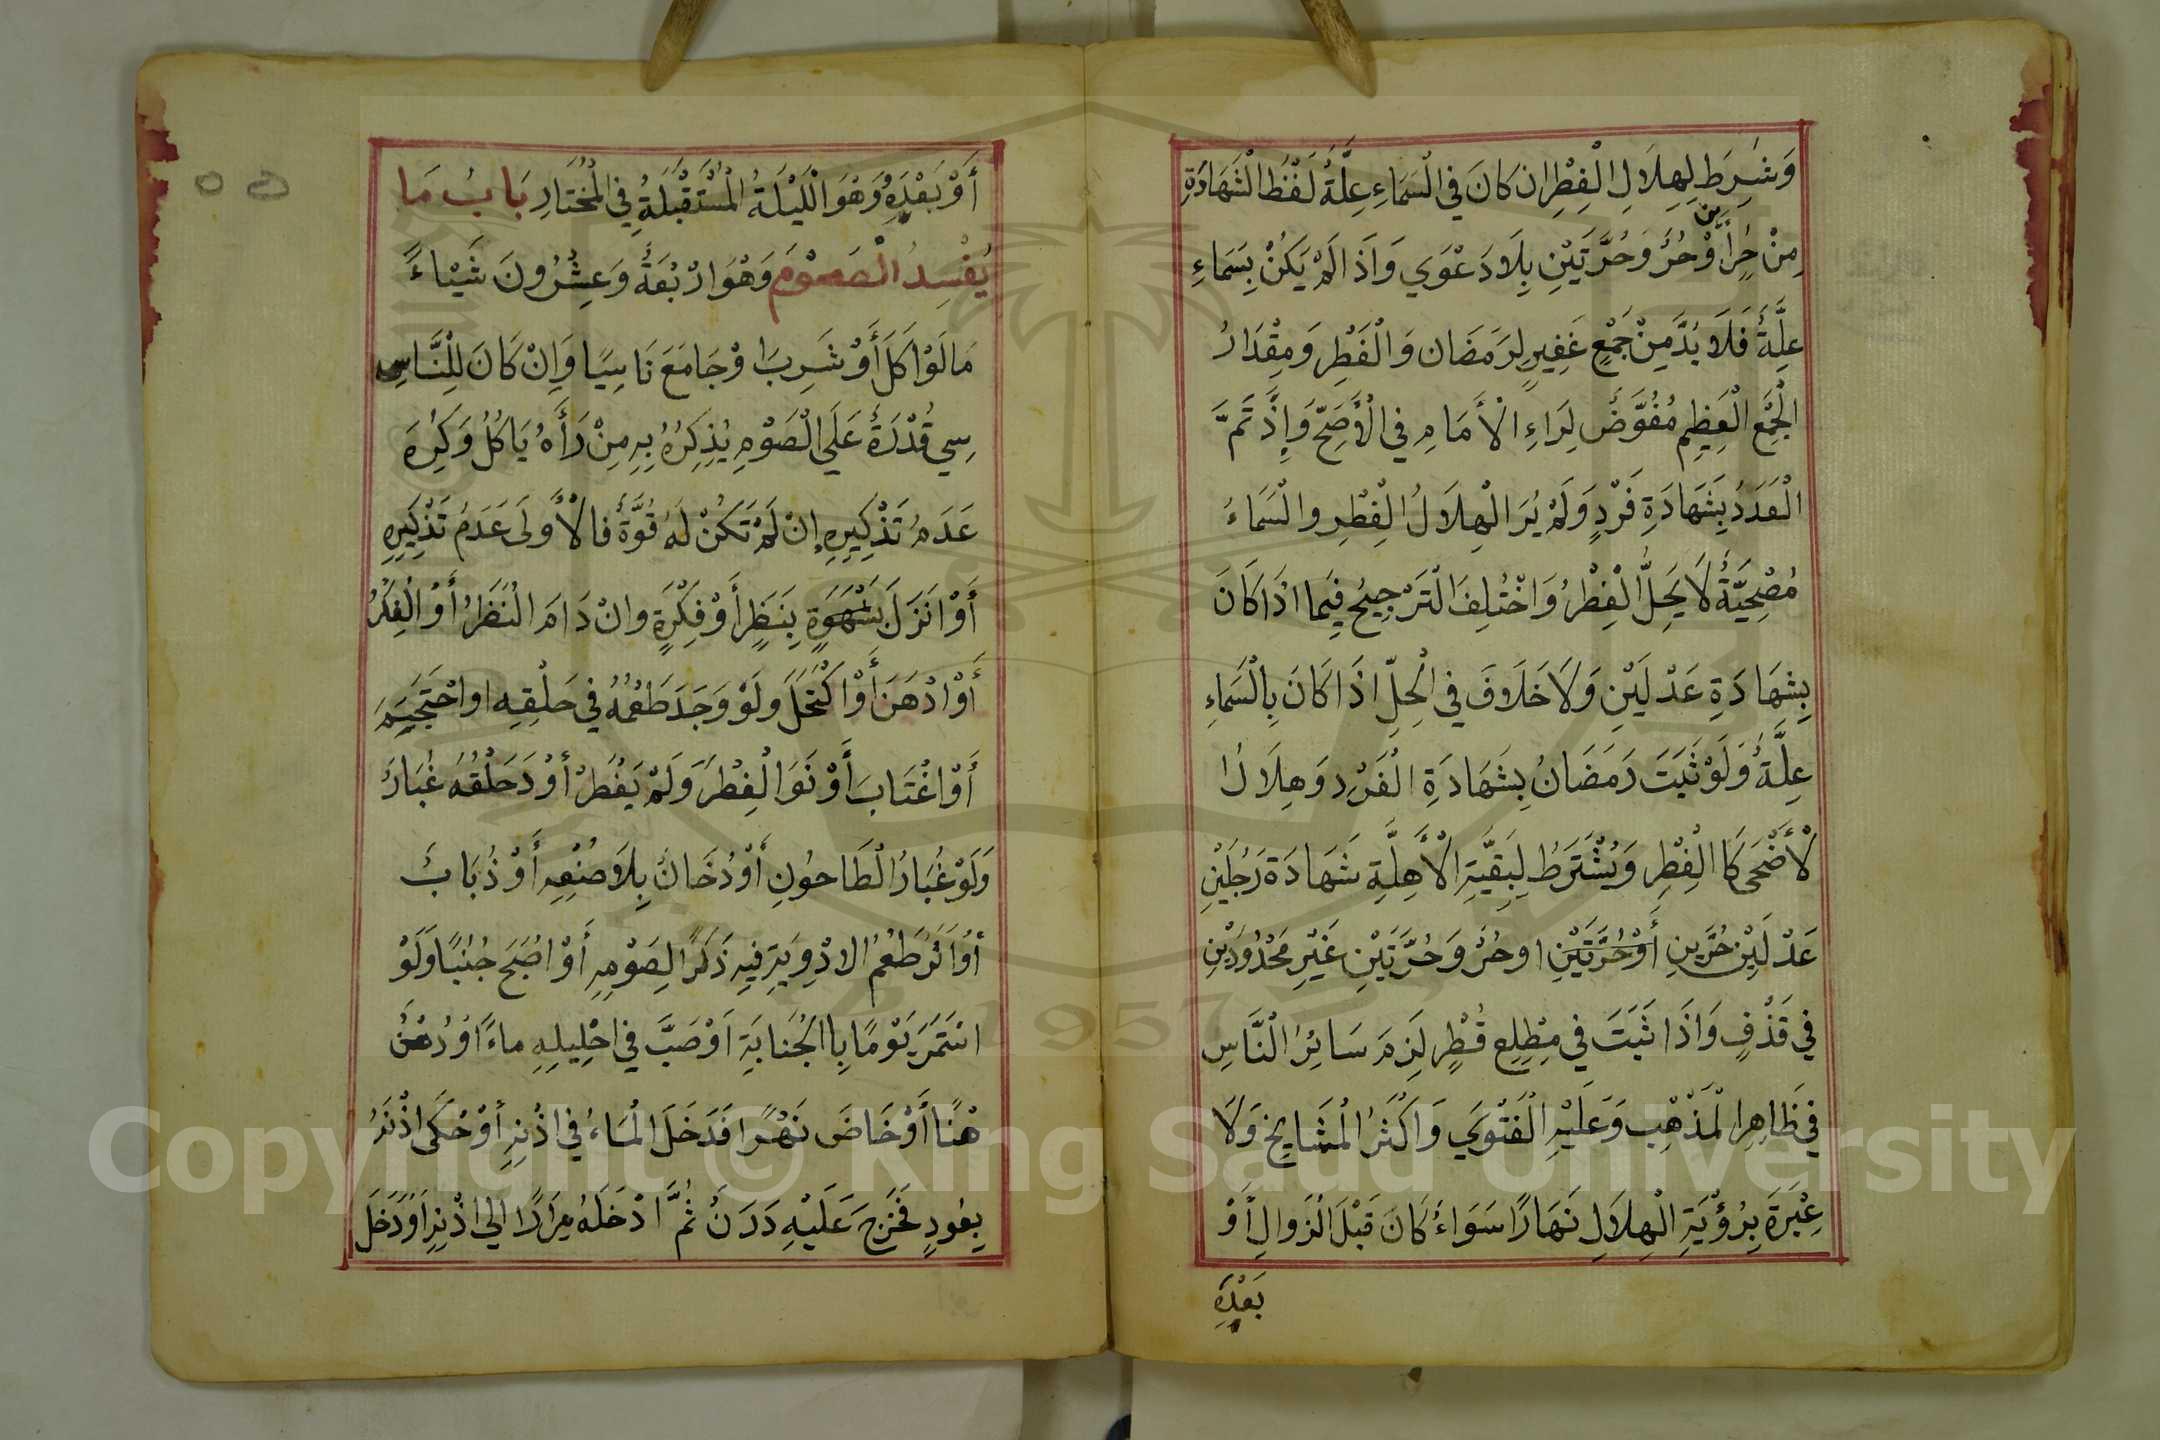 وَشُرِطَ لِهِلَالِ الْفِطْرِ ان كَانَ فِي الْسَمَاءِ عِلَّةٌ لَفْظُ الْشَهَادَةِ
مِنْ حُرَّيْنِ أَوْ حُرٍّ وَحُرَّتَيْنِ بِلَا دَعْوَي وَاَذَا لَمْ يَكُنْ بِسَمَاءِ
عِلَّةٌ فَلَا بُدَّ مِنْ جَمْعٍ غَفِيرٍ لِرَمَضَان وَالْفَطْرِ وَمِقْدَارُ
الْجَمْعِ الْعَظِيمِ مُفَوَّضٌ لِرَاءِ الْأَمَامِ فِي الْأَصَحِّ وَإِذَ تَمَّ
الْعَدَدُ بِشَهَادَةِ فَرْدٍ وَلَمْ يُرَ الْهِلَالُ الْفِطْرِ وَالْسَمَاءُ
مُصْحِيَّةٌ لَا يَحِلُّ الْفِطْرُ وَاخْتُلِفَ الْتَرْجِيحُ فِيَما اذَا كَانَ
بِشَهَادَةِ عَدْلَيْنِ وَلَا خَلَافَ فِي الْحِلِّ اذَا كَانَ بِالْسَمَاءِ
عِلَّةٌ وَلَوْ ثَبَتَ رَمَضَانُ بِشَهَادَةِ الْفَرْدِ وَهِلَالُ
لْأَضْحَى كَا الْفِطْرِ وَيُشْتَرَطُ لِبَقِيَّةِ الْأَهِلَّةِ شَهَادَة رَجُلَيْنِ
عَدْلَيْنِ حُرَّيْنِ أَوْحُرَّتَيْنِ اوحُرٍّ وَحُرَّتَيْنِ غَيْرِ مَحْدُودَيْنِ
فِي قَذْفٍ وَاذَا ثَبَتَ فِي مَطْلِعِ قُطْرٍ لَزِمَ سَائِرُ الْنَّاسِ
فِي ظَاهِرِ الْمَذْهِبِ وَعَلَيْهِ الْفَتْوَي وَاَكْثَرُ الْمَشَايِخِ وَلَا
عِبْرَةَ بِرُؤْيَةِ الْهِلَالِ نَهَارًا سَوَاءٌ كَانَ قَبْلَ الْزَوَالِ أَوْ
بَعْدِهِ
أَوْ بَعْدِهِ وَهُوَ الْلَيْلَةُ الْمُسْتَقْبِلَةُ فِي الْمُخْتَارِ بَابُ مَا
يُفْسِدُ الْصَوْمَ وَهُوَ ارْبَعَةٌ وَعِشْرُونَ شَيْاءً
مَا لَوْ اَكَلَ أَوْ شَرِبَ اوْجَامَعَ نَاسِيًا وَإِنْ كَانَ لِلْنَّاسِ
سِي قُدْرَةٌ عَلَي الْصَوْمِ يُذَكِّرُهُ بِهِ مِنْ رَأَهُ يَاكُلُ وَكَرِهَ
عَدَمُ تَذْكِيرِهِ إِنْ لَمْ تَكُنْ لَهُ قُوَّةٌ فَالْأَولَى عَدَمُ تَذْكِيرِهِ
أَوْ انَزَلَ بَشَهْوَةٍ بِنَظَرٍ أَوْ فِكْرَةٍ وانْ دَامَ الْنَظَرُ أَوْ الْفِكْرُ
أَوْ ادْهَنَ أَوْ اكْتَحَلَ وَلَوْ وَجَدَ طَعْمُهُ فِي حَلْقِهِ اواحْتَجَمَ
أَوْ اغْتَابَ أَوْ نَوَا الْفِطْرَ وَلَمْ يَفْطَرْ أوْ دَ حَلْقُهُ غُبَارٌ
وَلَوْ غُبَارُ الْطَاحُونِ أَوْ دُخَانٌ بِلَا صُنْعِهِ أَوْ ذُبَابٌ
أَوْ اَثَرُ طَعْمُ الادْوِيَةِ فِيهِ ذَكَرًا لِصَوْمِهِ أَوْ اصْبَحَ جُنُبًا وَلَوْ
اسْتَمَرَ يَوْمًا بِا الْجَنَابَةِ اَوْ صَبَّ فِي احْلِيلِهِ ماءً اوْ دُهْنُ
هْنًا أَوْ خَاضَ نَهْرًا فَدَخَلَ الْمَاءُ فِي اذُنِهِ أَوْحَكَى اذْنَهُ
بِعُودٍ فَخَرَجَ عَلَيْهِ دَرَنٌ ثُمَّ ادْخَلَهُ مِرَارًا الَي اذْنِهِ اَوْ دَخَلَ
Copyright © King Saud University
1957